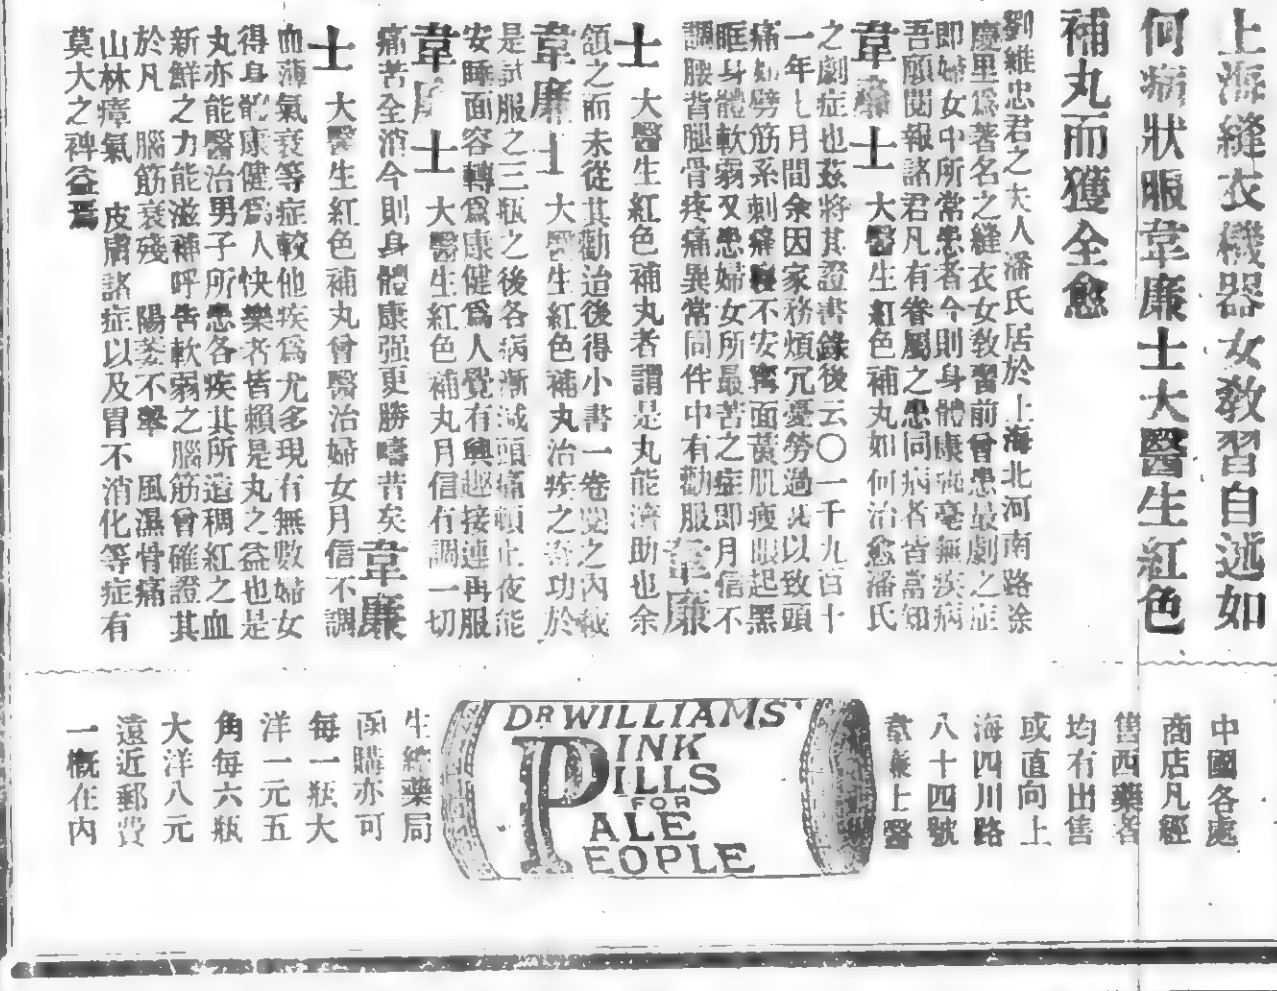 上海縫衣機器女敎習自述如
何病狀服韋廉士大醫生紅色
補丸而獲全愈
劉維忠君之夫人潘氏居於上海北河南路涂
慶里爲著名之縫衣女敎習前曾患最劇之症
即婦女中所常患者今則身體康強毫無疾病
吾願閱報諸君凡有眷屬之患同病者皆當知
韋廉士大醫生紅色補丸如何治愈潘氏
之劇症也茲將其證書錄後云〇一千九百十
一年七月間余因家務煩冗憂勞過以致頭
痛如劈筋系刺痛寢不安甯面黃肌瘦眼起黑
眶身體軟弱又患婦女所最苦之症即月信不
調腰背腿骨疼痛異常同伴中有勸服韋廉
士大醫生紅色補丸者謂是丸能濟助也余
頷之而未從其勸迨後得小書一卷受之內載
韋廉士大醫生紅色補丸治疾之功於
是試服之三瓶之後各病漸減頭痛頓止夜能
安睡面容轉爲康健爲人覺有興趣接連再服
韋廉士大醫生紅色補丸月信有調一切
痛苦全消今則身體康强更勝疇昔矣韋廉
士大醫生紅色補丸曾醫治婦女月信不調
血薄氣衰等症較他疾爲尤多現有無數婦女
得身體康健爲人快樂者皆賴是丸之益也是
丸亦能醫治男子所患各疾其所造稠紅之血
新鮮之力能滋補呼吿軟弱之腦筋曾確證其
於凡 腦筋衰殘 陽萎不舉 風濕骨痛
山林瘴氣 皮膚諸症以及胃不消化等症有
莫大之裨益焉
中國各處
商店凡經
售西藥者
均有出售
或直向上
海四川路
八十四號
韋廉士醫
DR WILLIAMS'
PINK
PILLS
FOR
PALE
PEOPLE
生總藥局
函購亦可
每一瓶大
洋一元五
角每六瓶
大洋八元
遠近郵費
一概在內